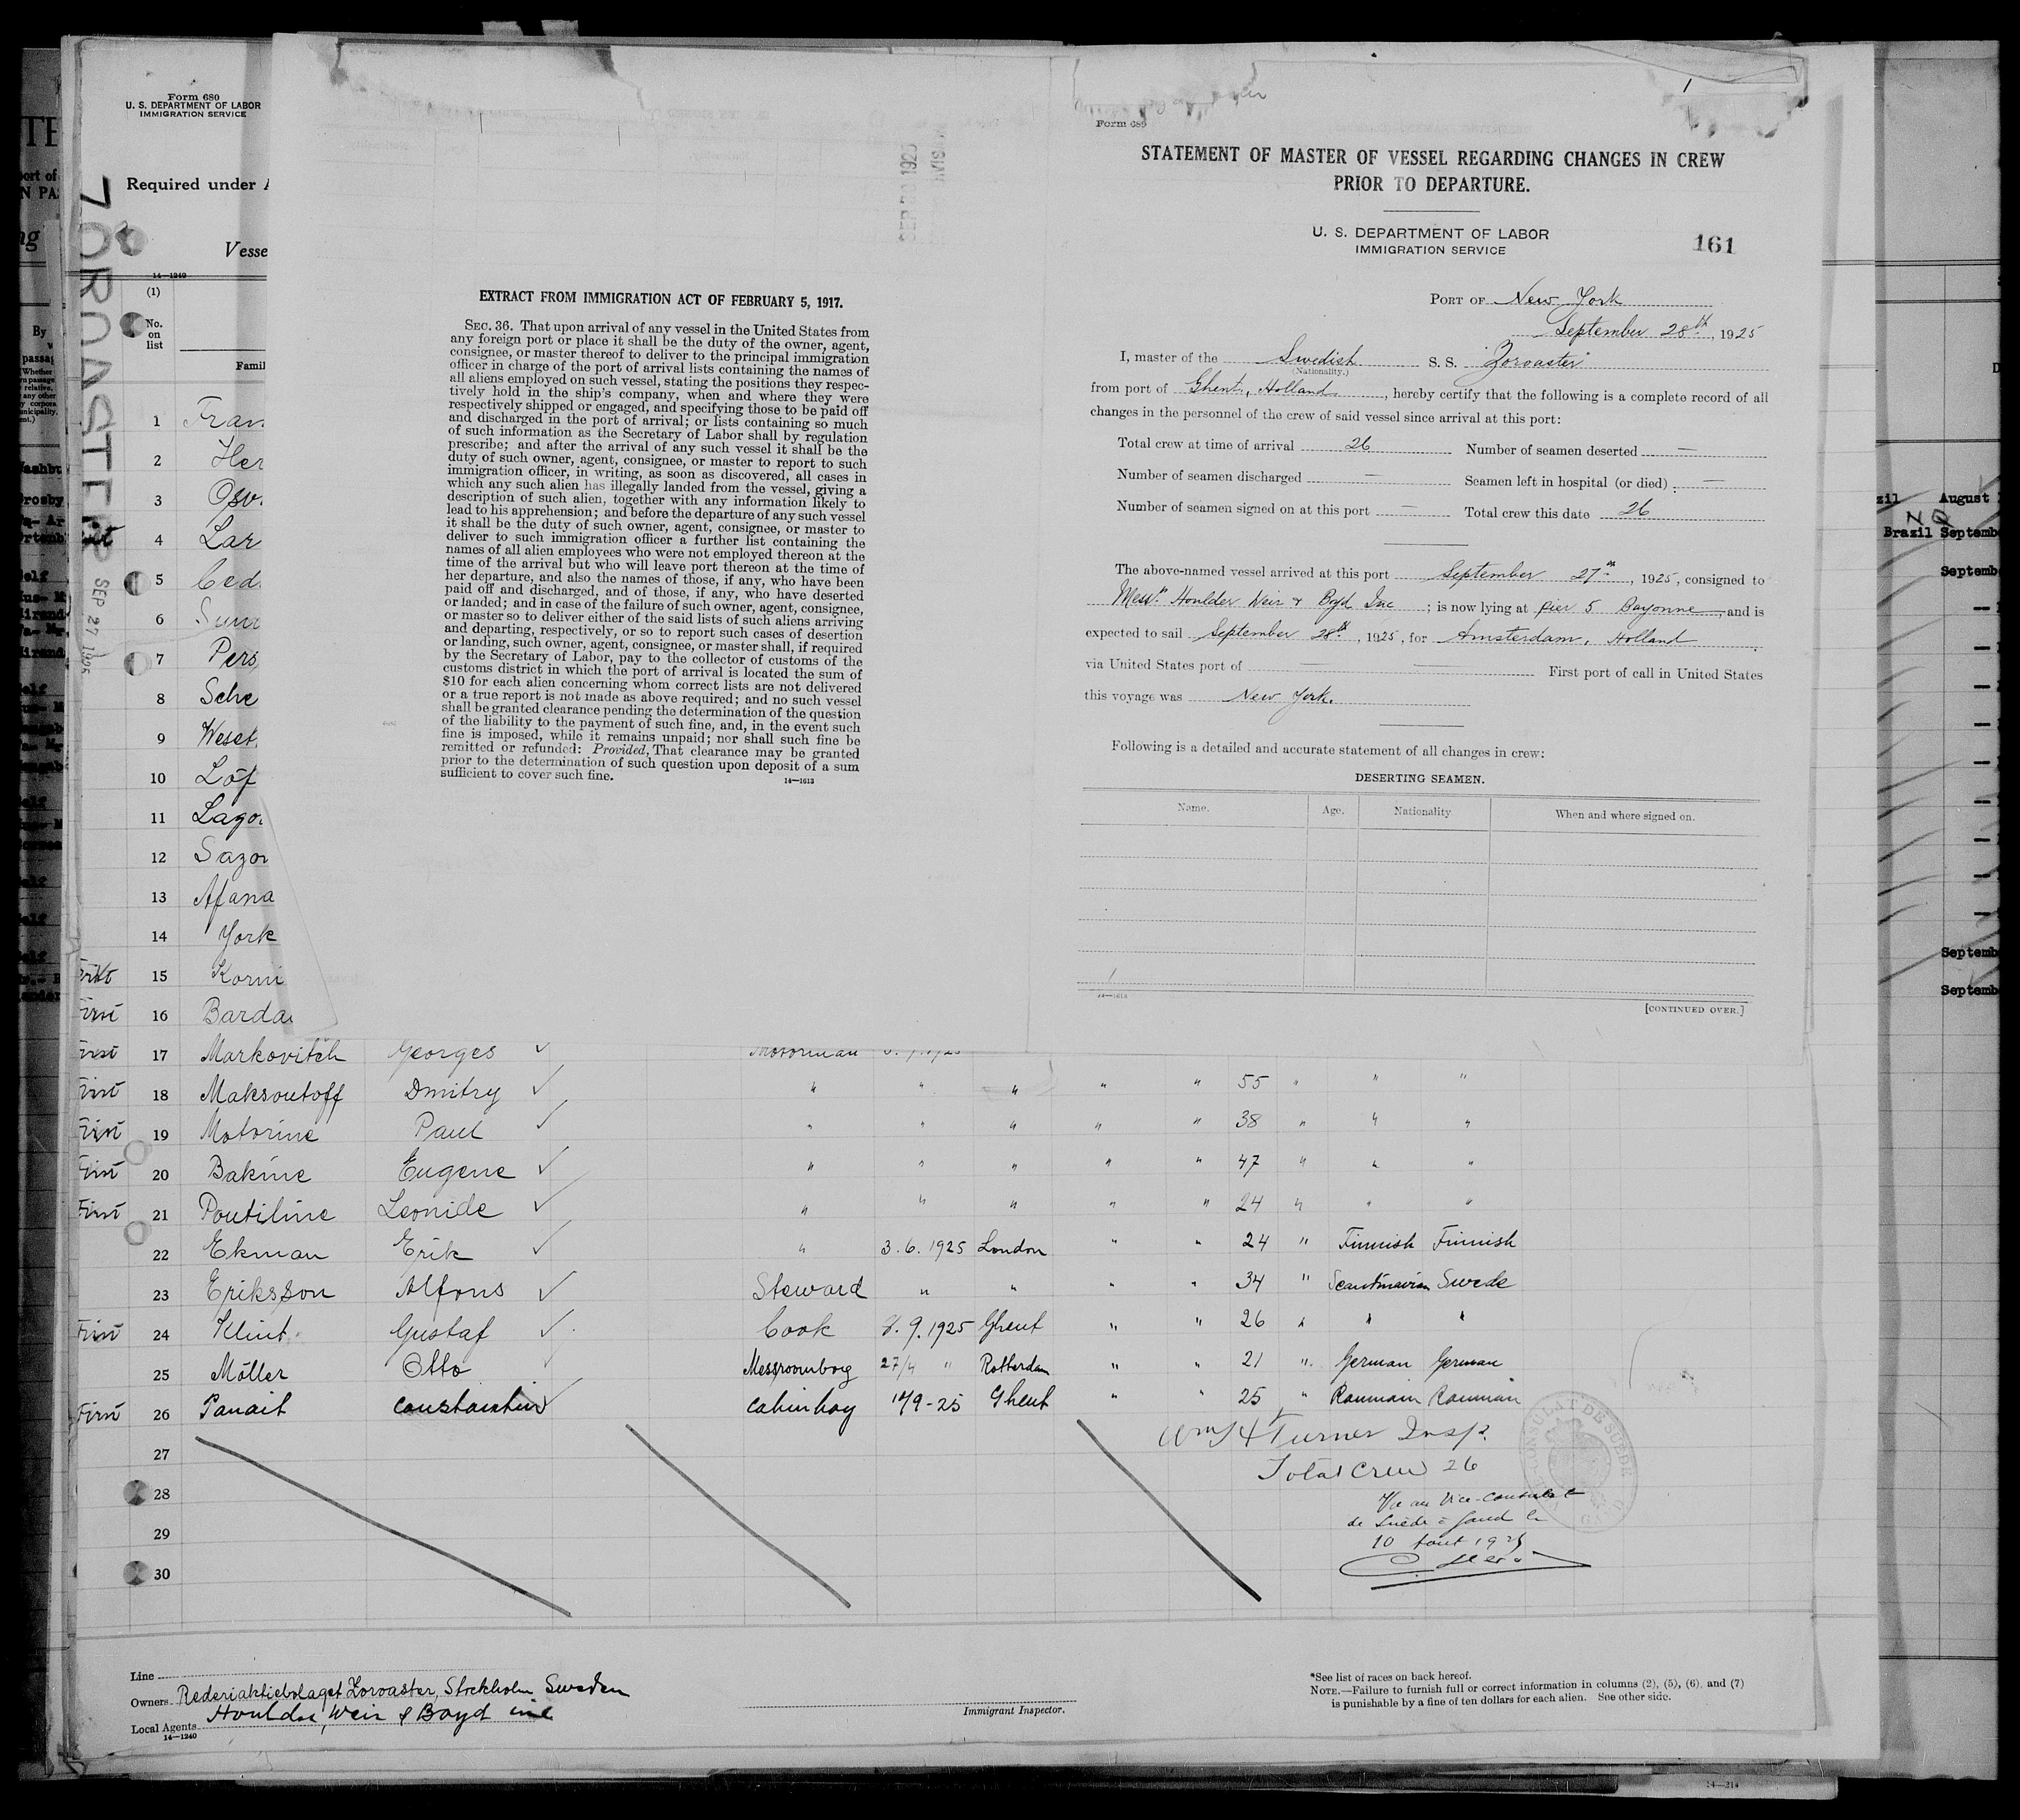 Form 680
U. S. DEPARTMENT OF LABOR
IMMIGRATION SERVICE
Required under
Vesse
14—1240
(1)
No.
on
list
Famil
ZOROASTER
SEP 27 1925
1 Fran
2 Her
3 Osv
4 Lar
5 Ced
6 Sun
7 Pers
8 Sche
9 Weset
10 Löf
11 Lago
12 Sazon
13 Afana
14 York
15 Korni
First 16 Barda
First 17 Markovitch Georges ✓ Motorman
First 18 Maksoutoff Dmitry ✓ " " " " " 55 " " "
First 19 Motorine Paul ✓ " " " " " 38 " " "
First 20 Bakine Eugene ✓ " " " " " 47 " " "
First 21 Poutiline Leonide ✓ " " " " " 24 " " "
22 Ekman Erik ✓ " 3.6.1925 London " " 24 " Finnish Finnish
23 Eriksson Alfons ✓ Steward " " " " 34 " Scandinavian Swede
First 24 Klint Gustaf ✓ Cook 8.9.1925 Ghent " " 26 " " "
25 Möller Otto ✓ Messroomboy 27/4 " Rotterdam " " 21 " German German
First 26 Panait Constantin ✓ Cabinboy 1/9-25 Ghent " " 25 " Roumain Roumain
27
28
29
30
Wm H Turner Insp.
Total Crew 26
Vu au Vice-Consulat
de Suède à Gand le
10 Aout 1925
CONSULAT DE SUEDE
Line
Owners Rederiaktiebolaget Zoroaster, Stockholm Sweden
Local Agents Houlder, Weir & Boyd inc
14—1240
Immigrant Inspector.
*See list of races on back hereof.
NOTE.—Failure to furnish full or correct information in columns (2), (5), (6), and (7)
is punishable by a fine of ten dollars for each alien. See other side.
EXTRACT FROM IMMIGRATION ACT OF FEBRUARY 5, 1917.
SEC. 36. That upon arrival of any vessel in the United States from
any foreign port or place it shall be the duty of the owner, agent,
consignee, or master thereof to deliver to the principal immigration
officer in charge of the port of arrival lists containing the names of
all aliens employed on such vessel, stating the positions they respec-
tively hold in the ship's company, when and where they were
respectively shipped or engaged, and specifying those to be paid off
and discharged in the port of arrival; or lists containing so much
of such information as the Secretary of Labor shall by regulation
prescribe; and after the arrival of any such vessel it shall be the
duty of such owner, agent, consignee, or master to report to such
immigration officer, in writing, as soon as discovered, all cases in
which any such alien has illegally landed from the vessel, giving a
description of such alien, together with any information likely to
lead to his apprehension; and before the departure of any such vessel
it shall be the duty of such owner, agent, consignee, or master to
deliver to such immigration officer a further list containing the
names of all alien employees who were not employed thereon at the
time of the arrival but who will leave port thereon at the time of
her departure, and also the names of those, if any, who have been
paid off and discharged, and of those, if any, who have deserted
or landed; and in case of the failure of such owner, agent, consignee,
or master so to deliver either of the said lists of such aliens arriving
and departing, respectively, or so to report such cases of desertion
or landing, such owner, agent, consignee, or master shall, if required
by the Secretary of Labor, pay to the collector of customs of the
customs district in which the port of arrival is located the sum of
$10 for each alien concerning whom correct lists are not delivered
or a true report is not made as above required; and no such vessel
shall be granted clearance pending the determination of the question
of the liability to the payment of such fine, and, in the event such
fine is imposed, while it remains unpaid; nor shall such fine be
remitted or refunded: Provided, That clearance may be granted
prior to the determination of such question upon deposit of a sum
sufficient to cover such fine.
14—1613
Form 689
STATEMENT OF MASTER OF VESSEL REGARDING CHANGES IN CREW
PRIOR TO DEPARTURE.
U. S. DEPARTMENT OF LABOR
IMMIGRATION SERVICE
161
PORT OF New York
September 28th, 1925
I, master of the Swedish S. S. "Zoroaster"
(Nationality.)
from port of Ghent, Holland, hereby certify that the following is a complete record of all
changes in the personnel of the crew of said vessel since arrival at this port:
Total crew at time of arrival 26 Number of seamen deserted —
Number of seamen discharged — Seamen left in hospital (or died) —
Number of seamen signed on at this port — Total crew this date 26
The above-named vessel arrived at this port September 27th, 1925, consigned to
Messrs Houlder Weir & Boyd Inc; is now lying at pier 5 Bayonne, and is
expected to sail September 28th, 1925, for Amsterdam, Holland
via United States port of — — First port of call in United States
this voyage was New York.
Following is a detailed and accurate statement of all changes in crew:
DESERTING SEAMEN.
Name. Age. Nationality When and where signed on.
14—1613
[CONTINUED OVER.]
zil August
Brazil Septemb
Septemb
Septemb
Septemb
14—214